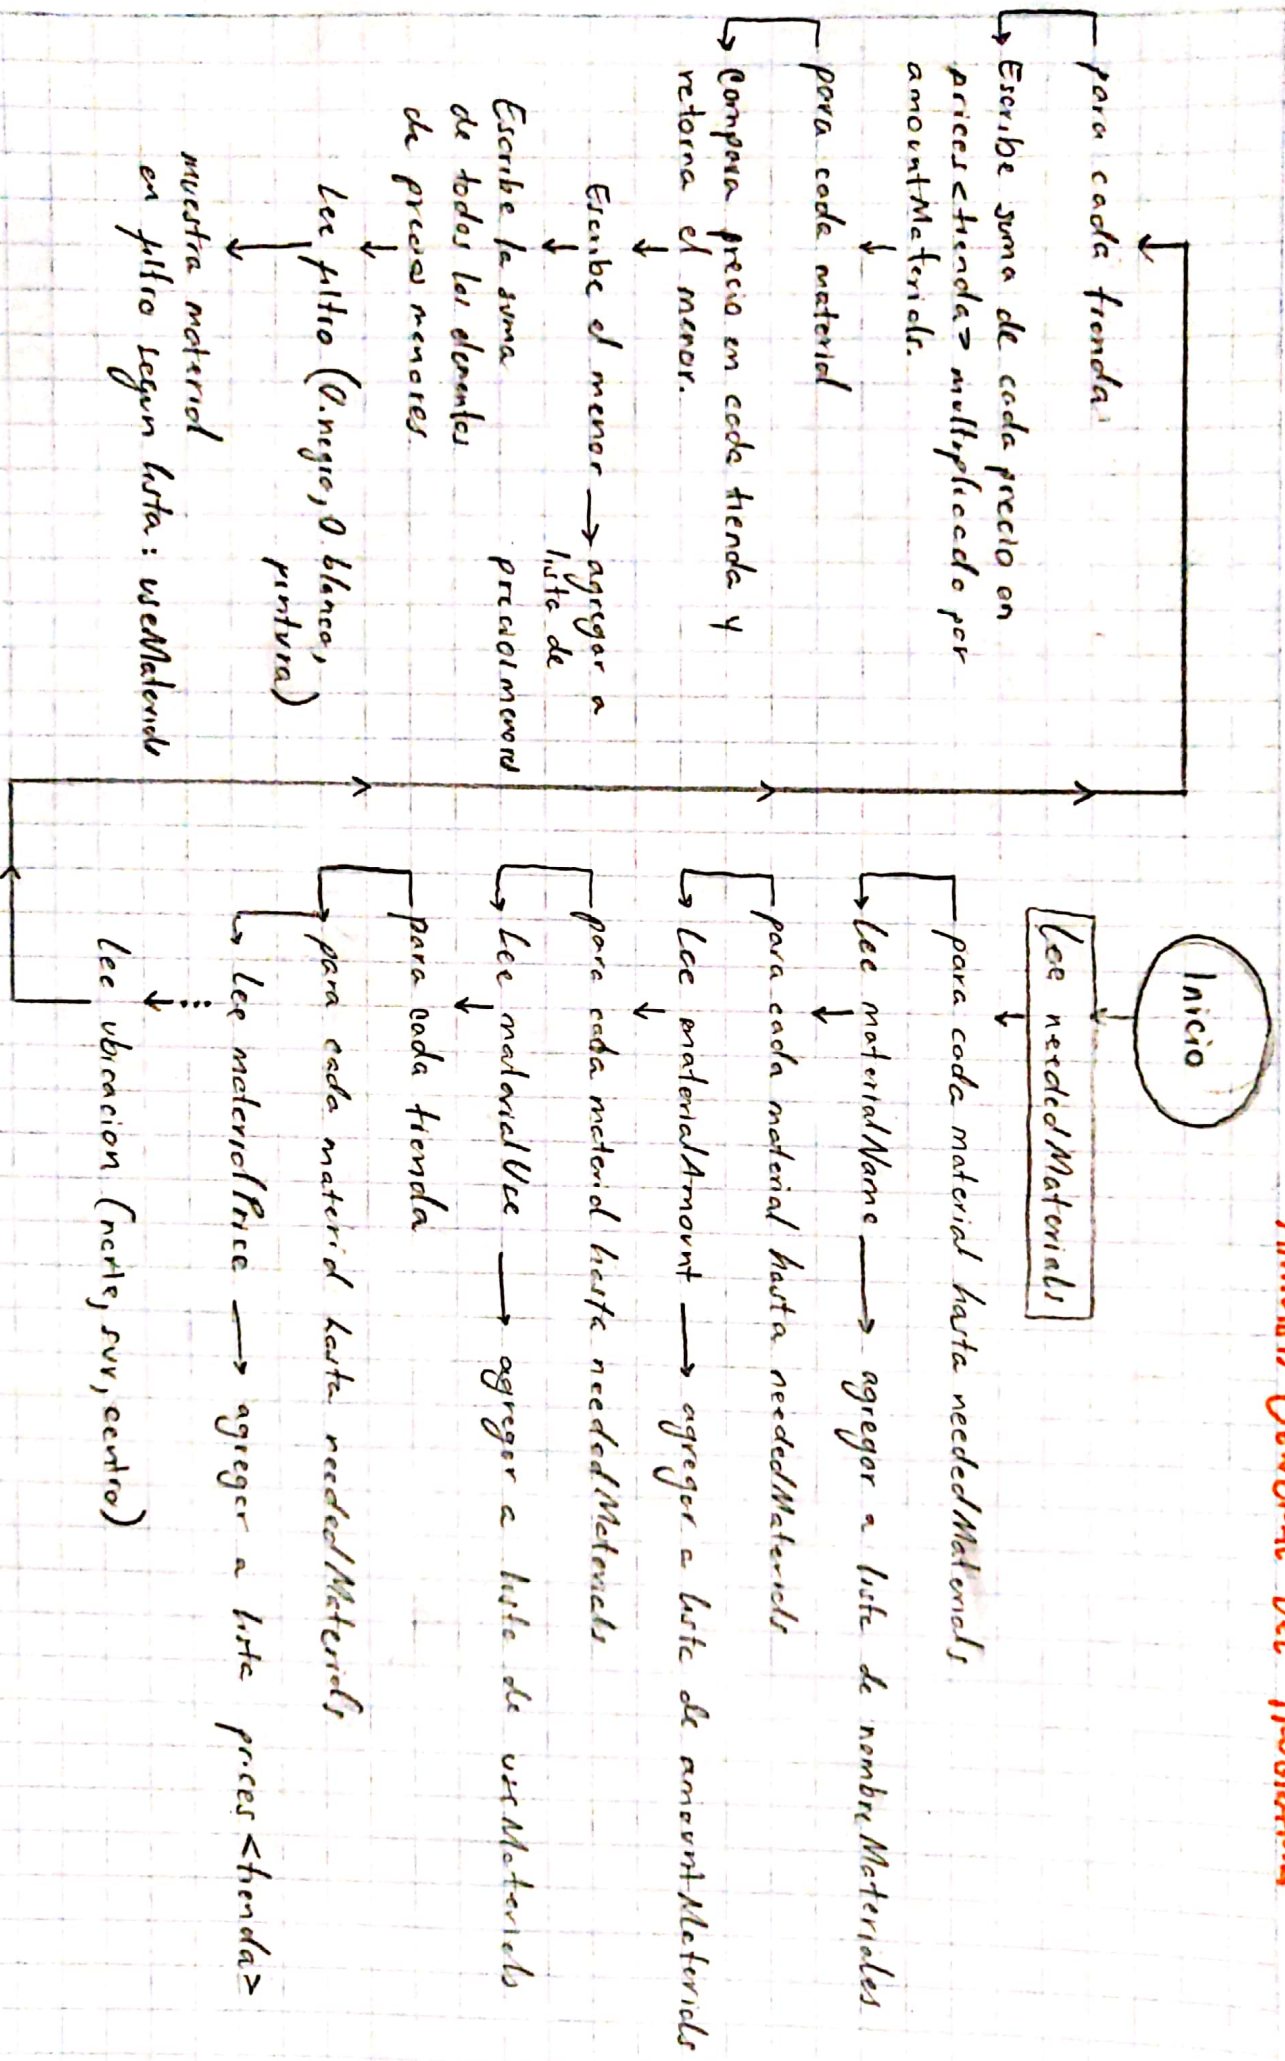 Inicio
Lee neededMaterials
para cada material hasta neededMaterials
Lee materialName → agregar a lista de nombreMateriales
para cada material hasta neededMaterials
Lee materialAmount → agregar a lista de amountMaterials
para cada material hasta neededMaterials
Lee materialUse → agregar a lista de useMaterials
para cada tienda
para cada material hasta neededMaterials
Lee materialPrice → agregar a lista prices<tienda>
Lee ubicacion (norte, sur, centro)
para cada tienda
Escribe suma de cada precio en
prices<tienda> multiplicado por
amountMaterials.
para cada material
Compara precio en cada tienda y
retorna el menor.
Escribe el menor → agregar a
lista de
precios menores
Escribe la suma
de todos los elementos
de precios menores.
Lee filtro (O.negra, O.blanca,
pintura)
muestra material
en filtro segun lista: useMaterials